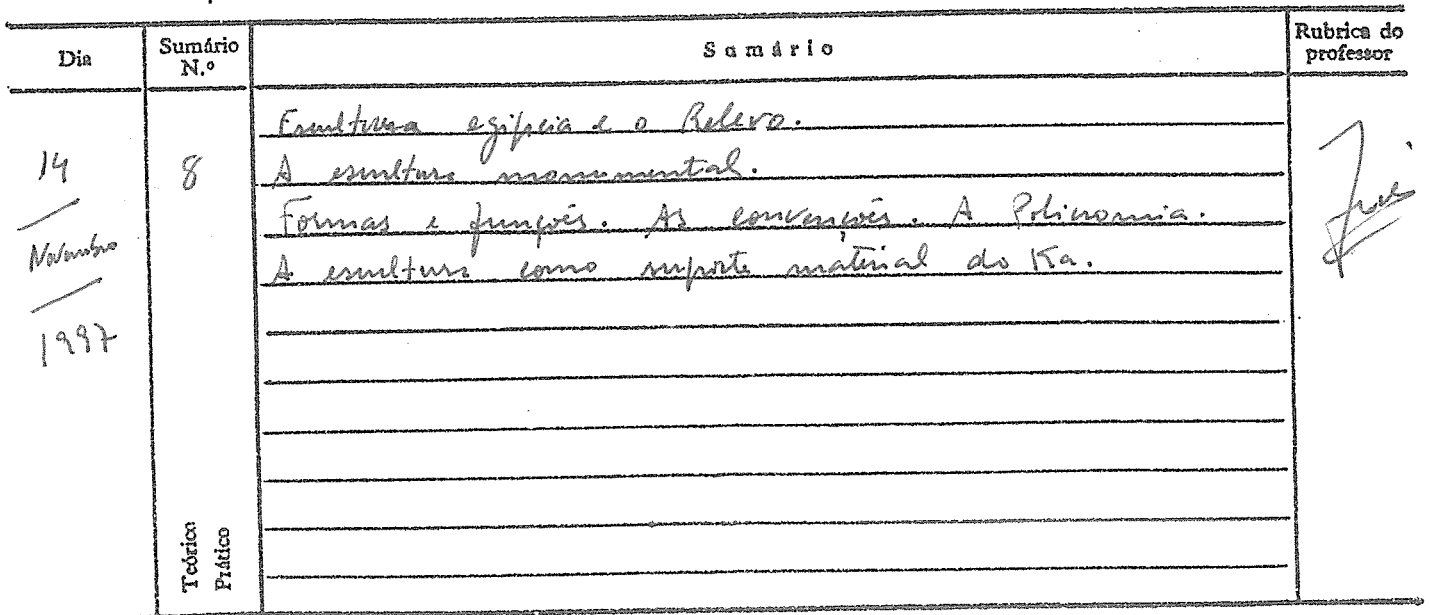 Dia
Sumário N.º
Sumário
Rubrica do professor
14
Novembro
1997
8
Escultura egípcia e o Relevo.
A escultura monumental.
Formas e funções. As convenções. A Policromia.
A escultura como suporte material do Ka.
Teórico
Prático